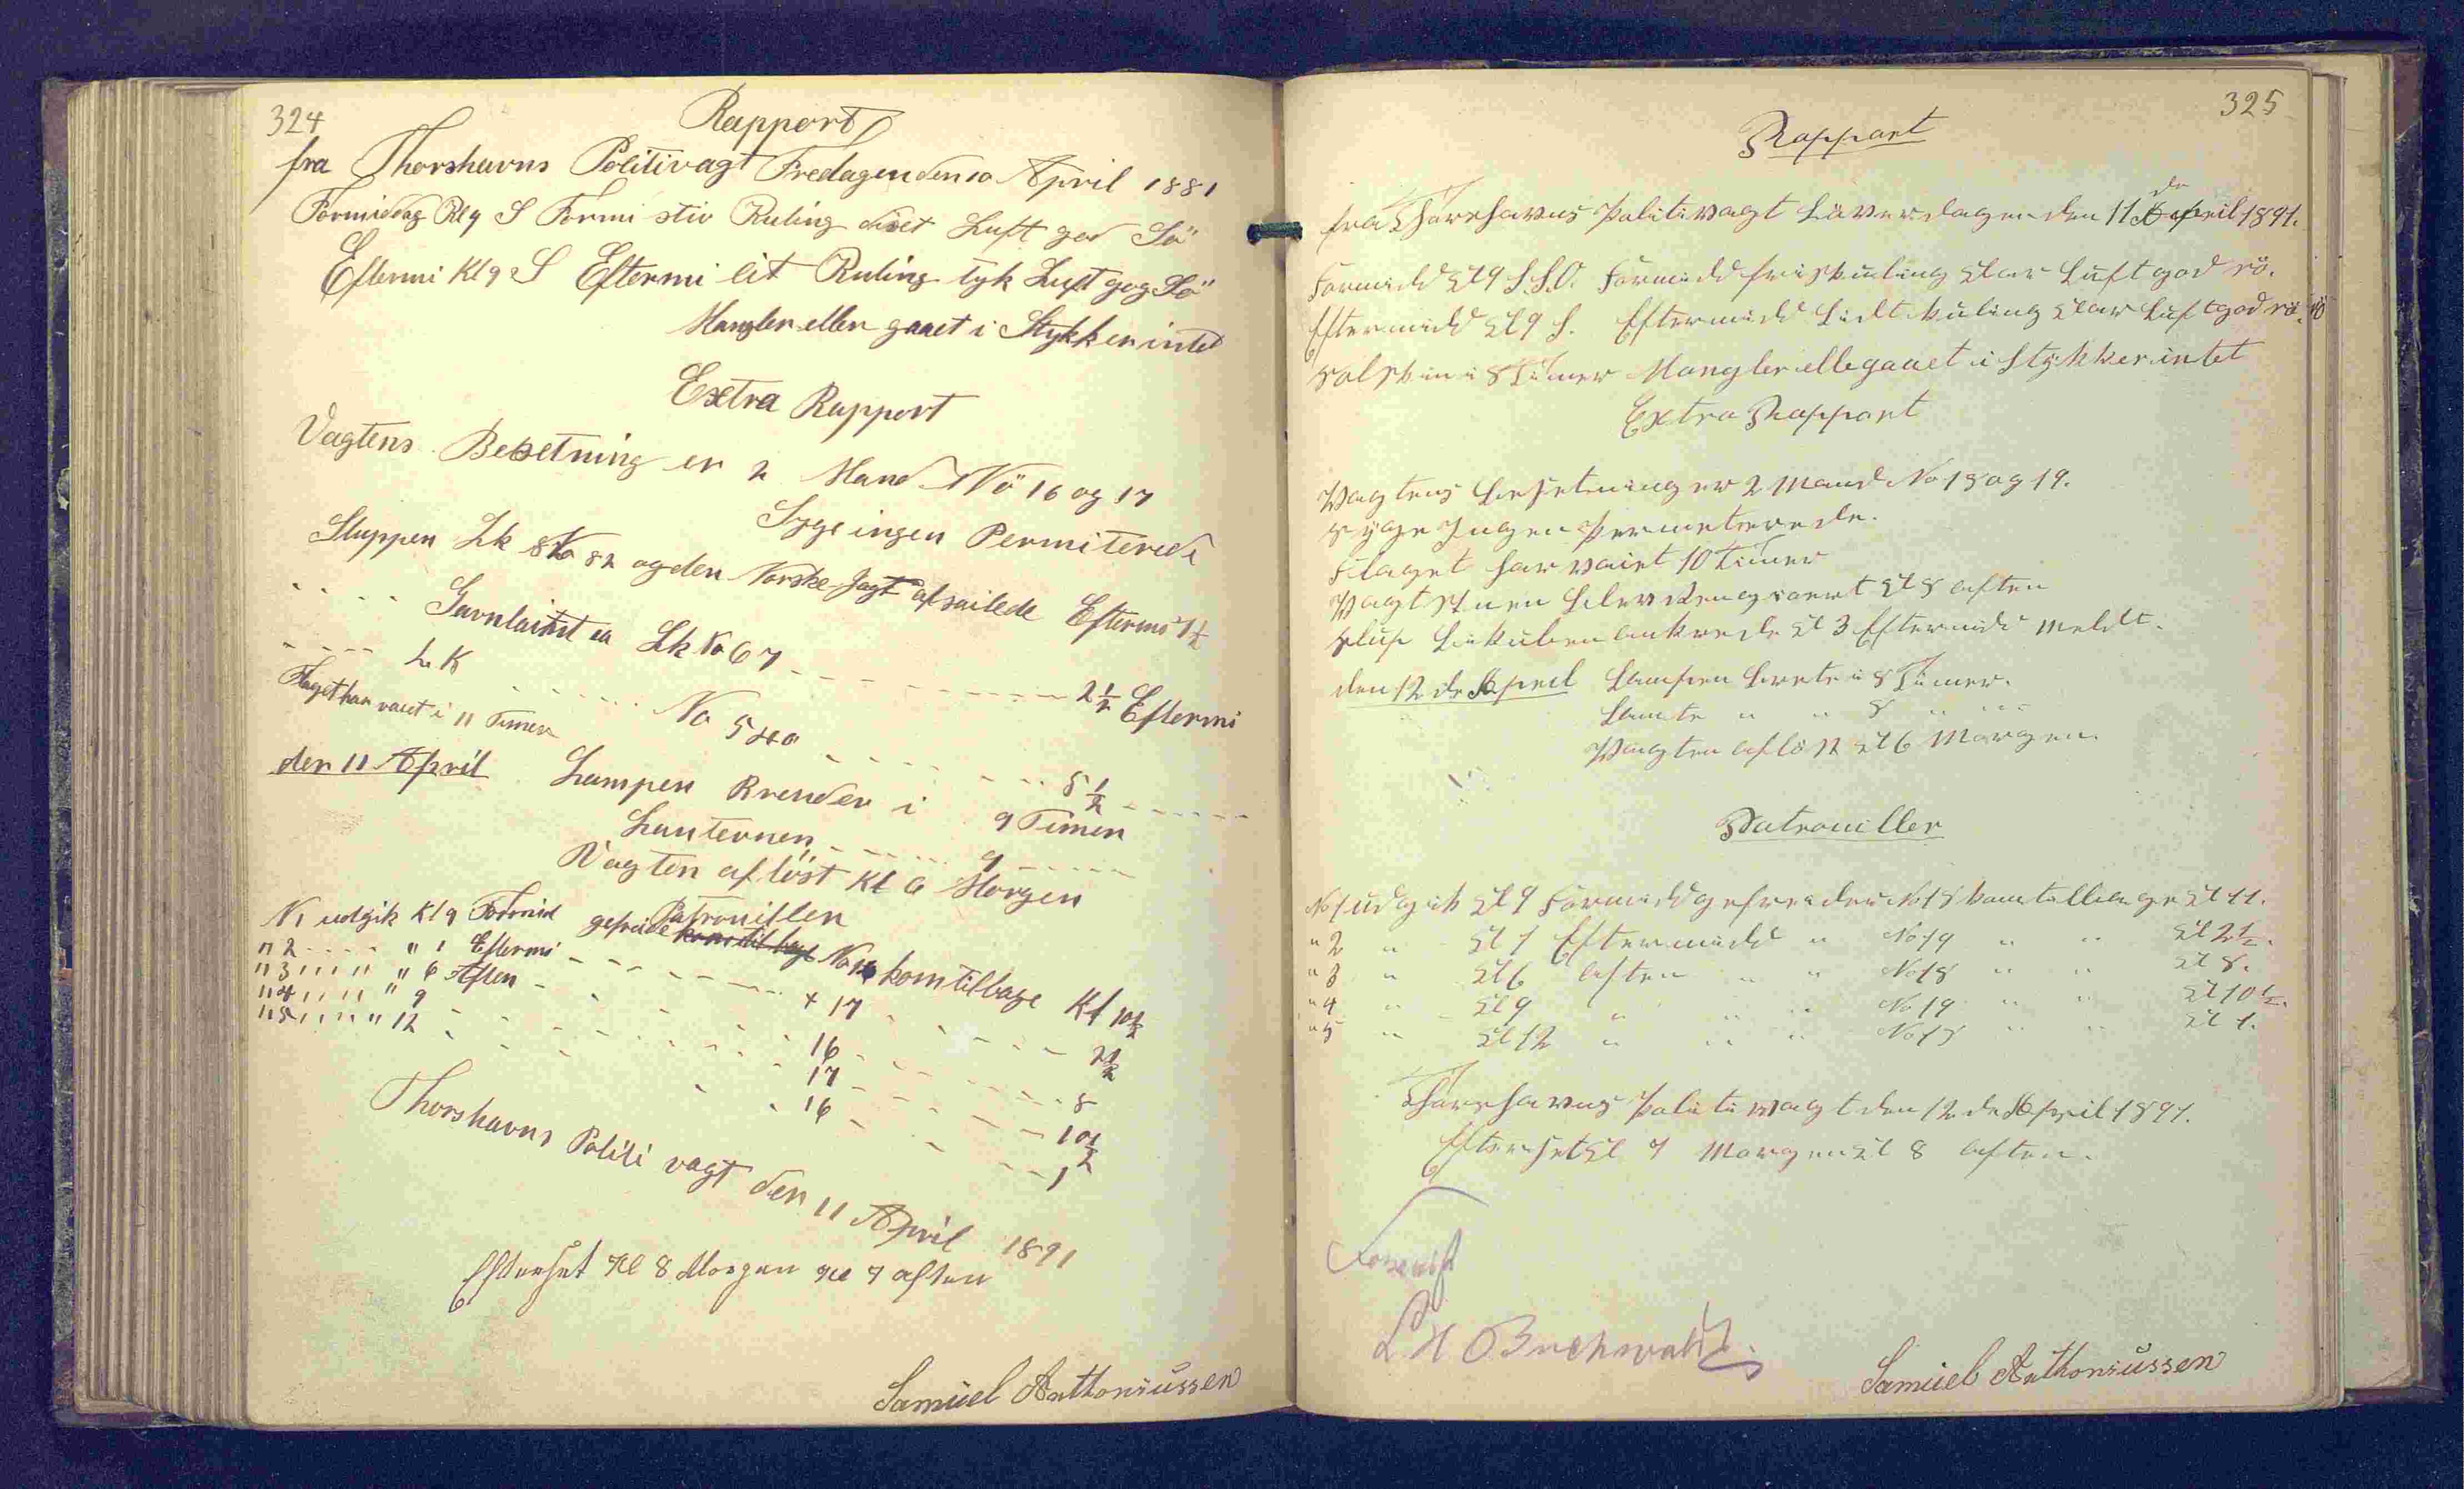 324
Rapport
fra Thorshavns Politivagt Fredagen den 10 April 1881
Formiddag Kl 9 S Formi stiv Kuling diset Luft god Sö
Eftermi Kl 9 S Eftermi lit Kuling tyk Luft gog Sö
Mangler eller gaaet i Stykker intet
Extra Rapport
Vagtens Besetning er 2 Mand No 16 og 17
Syge ingen Permiterede
Sluppen Lk No 82 og den Norske Jagt afsailede Eftermi 1 1/2
Lk No 67 - - - 2 1/2 Eftermi
- - - - L K - - - - No 540 - - - - 5 1/2 - - - -
Flaget har vaiet i 11 Timer
den 11 April Lampen Brender i 9 Timer
Lanternen - - - - 9 - - - -
Vagten aflöst Kl 6 Morgen
Patrouillen
N1 udgik Kl 9 Formid gefreide No 16 kom tilbage Kl 10 1/2
" 2 - - - - " 1 Eftermi - - - - 17 - - - - 2 1/2
" 3 " " " " 6 Aften - - - - 16 - - - - 8
" 4 " " " " 9 - - - - 17 - - - - 10 1/2
" 5 " " " " 12 - - - - 16 - - - - 1
Thorshavns Politi vagt den 11 April 1891
Efterset Kl 8 Morgen Kl 7 aften
Samüel Anthoniüssen
325
Rapport
fra Thorshavns Politivagt Löverdagen den 11 de April 1891.
Formidd Kl 9 S.S.O. Formidd frisk küling klar Lüft god sö.
Eftermidd Kl 9 S. Eftermidd Lidt küling klar Lüft god sö.
Solskin i 8 Timer Mangler elle gaaet i Stÿkker intet
Extra Rapport
Vagtens Besetning er 2 Mand No 18 og 19.
Sÿge Ingen Permeterede.
Flaget har vaiet 10 Timer
Vagtstuen blev rengioert Kl 8 Aften
Slup ankrede Kl 3 Eftermidd meldt.
den 12 de April Lampen brente i 8 Timer.
Lante " " 8 " "
Vagten aflöst Kl 6 Morgen.
Patrouiller
No 1 üdgik Kl 9 Formidd gefreider No 18 kom tilbage Kl 11.
" 2 " Kl 1 Eftermidd " No 19 " " Kl 2 1/2.
" 3 " Kl 6 Aften " " No 18 " " Kl 8.
" 4 " Kl 9 " " " No 19 " " Kl 10 1/2.
" 5 " Kl 12 " " " No 18 " " Kl 1.
Thorshavns Politivagt den 12 de April 1891.
Efterset Kl 7 Morgen Kl 8 Aften.
L H Buchwaldt.
Samüel Anthoniüssen